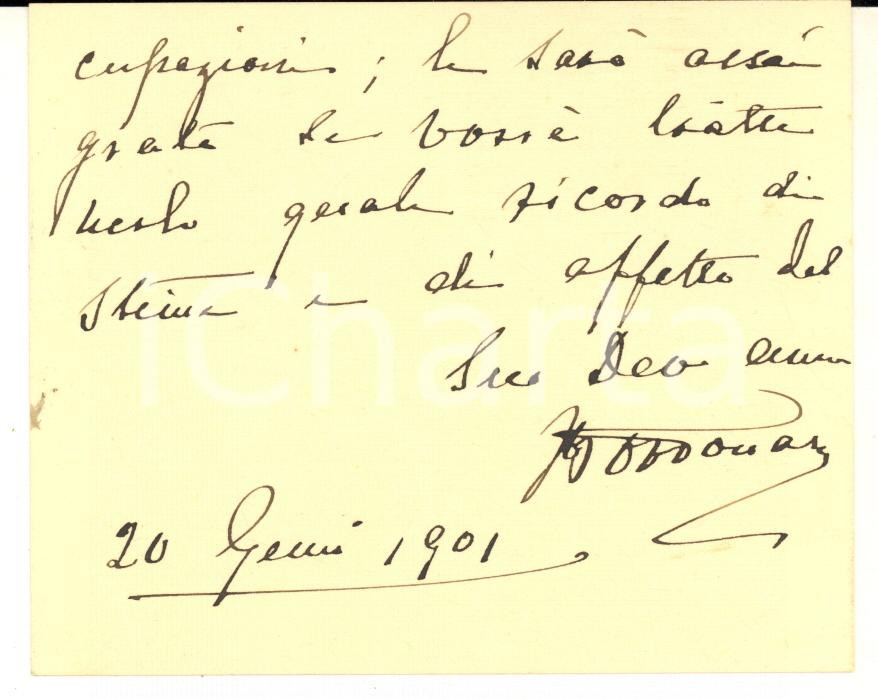 cupazioni; le sarò assai
grata se vorrà tratte
nerlo quale ricordo di
stima e di affetto del
Suo Dev
20 Genn 1901
iCharta